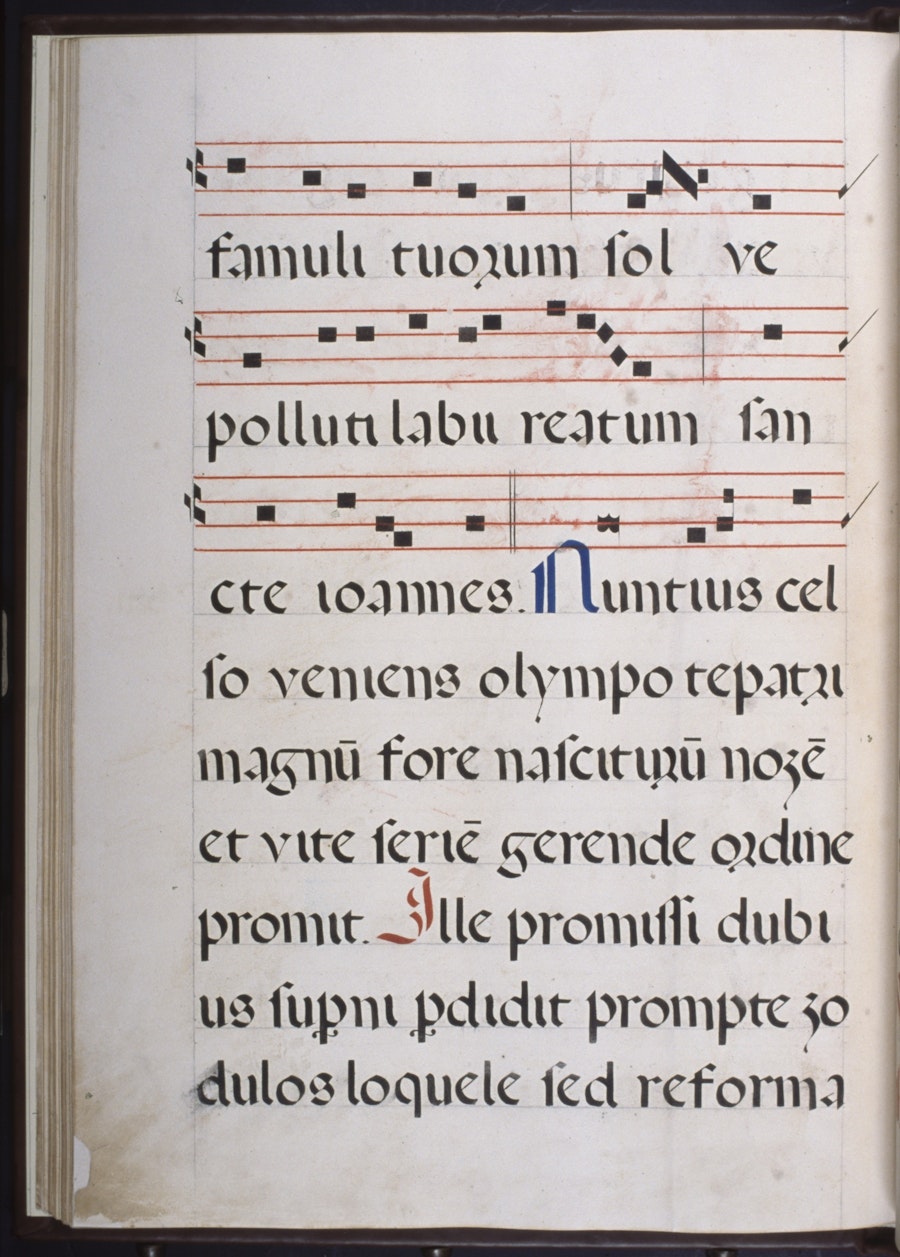 famuli tuoꝛum ſol ve
polluti labii reatum ſan
cte ioannes. Nuntius cel
ſo veniens olympo te patꝛi
magnū fore naſcituꝛū noʒē
et vite ſeriē gerende oꝛdine
promit. Ille promiſſi dubi
us ſuꝑni ꝑdidit prompte ʒo
dulos loquele ſed reforma